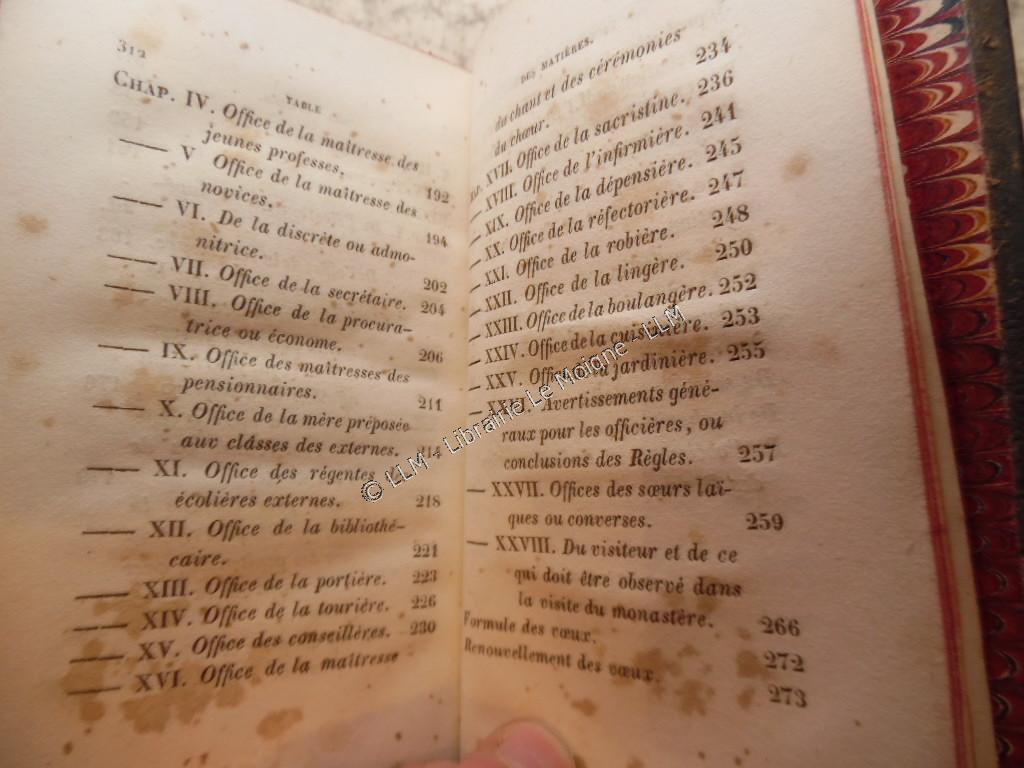 312
TABLE
CHAP. IV. Office de la maîtresse des
jeunes professes. 192
—— V Office de la maîtresse des
novices. 194
—— VI. De la discrète ou admo-
nitrice. 202
—— VII. Office de la secrétaire. 204
—— VIII. Office de la procura-
trice ou économe. 206
—— IX. Office des maîtresses des
pensionnaires. 211
—— X. Office de la mère préposée
aux classes des externes. 214
—— XI. Office des régentes
écolières externes. 218
—— XII. Office de la bibliothé-
caire. 221
—— XIII. Office de la portière. 223
—— XIV. Office de la tourière. 226
—— XV. Office des conseillères. 230
—— XVI. Office de la maîtresse
DES MATIÈRES.
du chant et des cérémonies
du chœur. 234
XVII. Office de la sacristine. 236
— XVIII. Office de l'infirmière. 241
— XIX. Office de la dépensière. 245
— XX. Office de la réfectorière. 247
— XXI. Office de la robière. 248
— XXII. Office de la lingère. 250
— XXIII. Office de la boulangère. 252
— XXIV. Office de la cuisinière. 253
— XXV. Office de la jardinière. 255
— XXVI. Avertissements géné-
raux pour les officières, ou
conclusions des Règles. 257
— XXVII. Offices des sœurs laï-
ques ou converses. 259
— XXVIII. Du visiteur et de ce
qui doit être observé dans
la visite du monastère. 266
Formule des vœux. 272
Renouvellement des vœux. 273
© LLM - Librairie Le Moigne - LLM